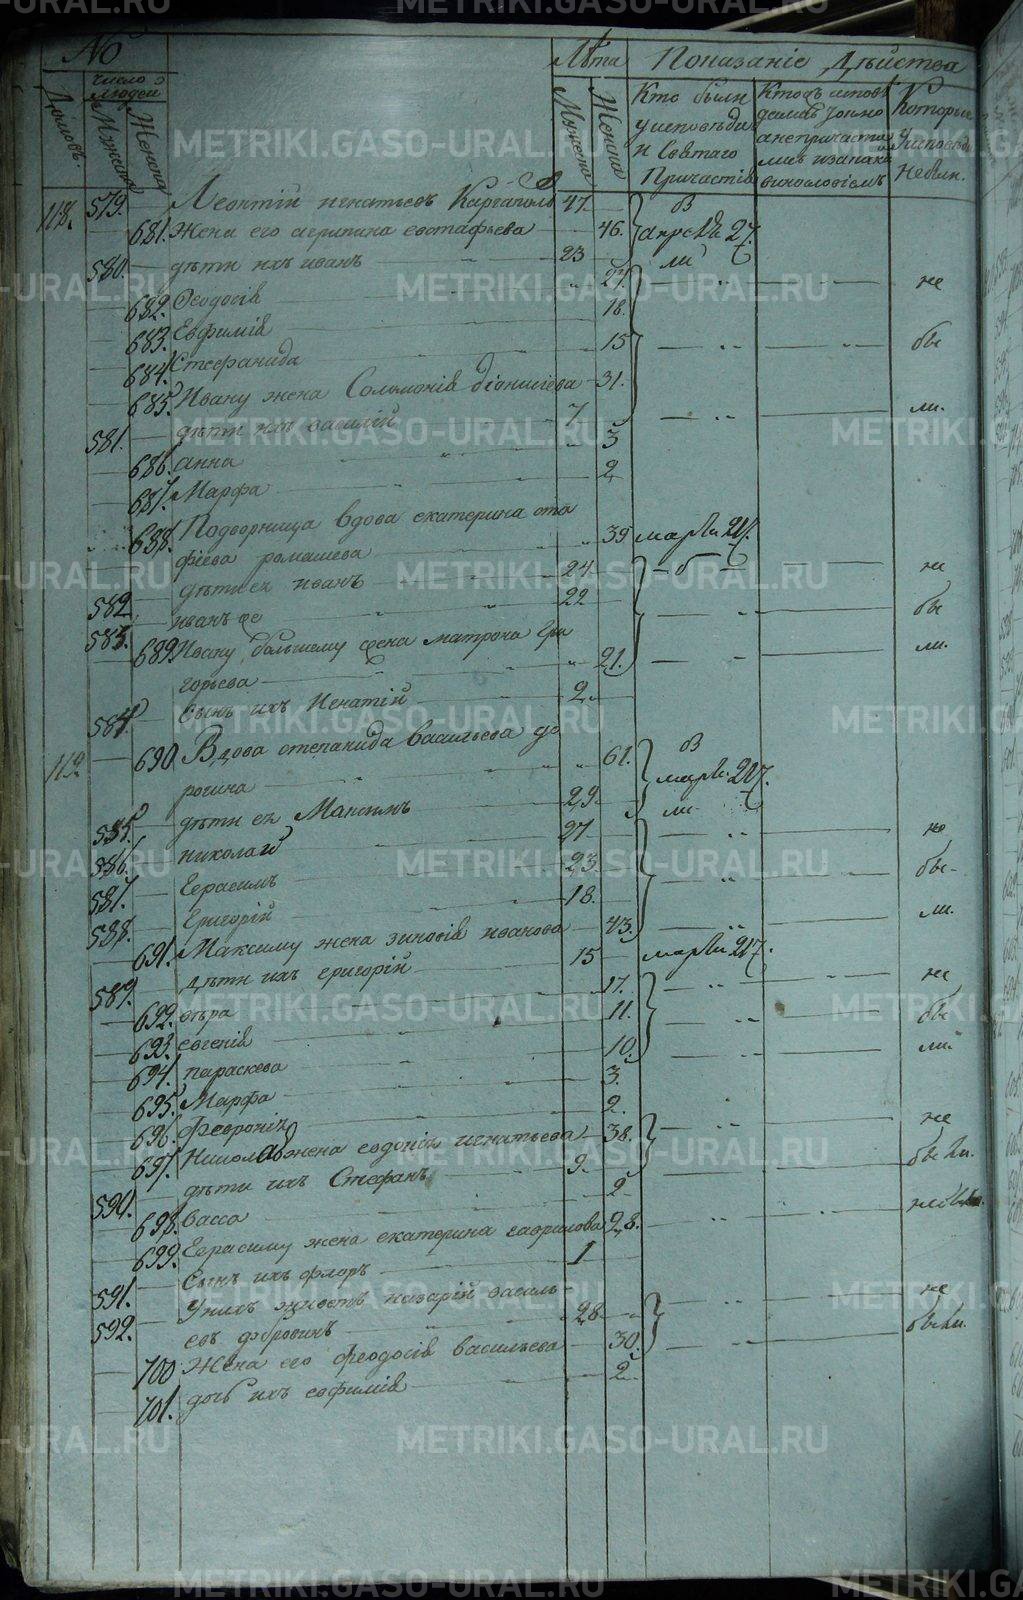 №
Число людей
Домовъ.
Мужеска
Женска
Лѣта
Мужеска
Женска
Показаніе Дѣйства
Кто были у исповѣди и Святаго Причастія
Которые у исповѣди не были.
118. 579. Леонтій игнатьевъ Каргаполо 47.
681. Жена его агрипина евстафьева 46. апрѣля 27.
580. дѣти ихъ иванъ 23
682. Ѳеодосія 21. не
683. Евфимія 18.
684. Стефанида 15 бы
685. Ивану жена Соломонія діонисіева 31.
581. дѣти ихъ василій 7 ли.
686. анна 3
687. Марфа 2
688. Подворница вдова екатерина ота 39 марта 27.
фіева ромашева
582. дѣти ея иванъ 24 не
583. иванъ же 22 бы
689. Ивану большему жена матрона гри 21. ли.
горьева
584. Сынъ ихъ Игнатій 2
119 690. Вдова степанида васильева до 61. марта 27.
рогина
585. дѣти ея Максимъ 29
586. николай 27 не
587. Герасимъ 23. бы
588. Григорій 18. ли.
691. Максиму жена зиновія иванова 43. марта 27.
589. дѣти ихъ григорій 15
692. вѣра 17. не
693. евгенія 11. бы
694. параскева 10. ли
695. Марфа 3.
696. Февронія 2.
697. Николаю жена евдокія игнатьева 38. не
590. дѣти ихъ Стефанъ 9. были.
698. васса 2
699. Герасиму жена екатерина гаврилова 28.
591. Сынъ ихъ флоръ 1
592. У нихъ жилостъ назарій василь 28 не
евъ добровинъ
700 Жена его феодосія васильева 30. были.
701. дочь ихъ евфимія 2
METRIKI.GASO-URAL.RU